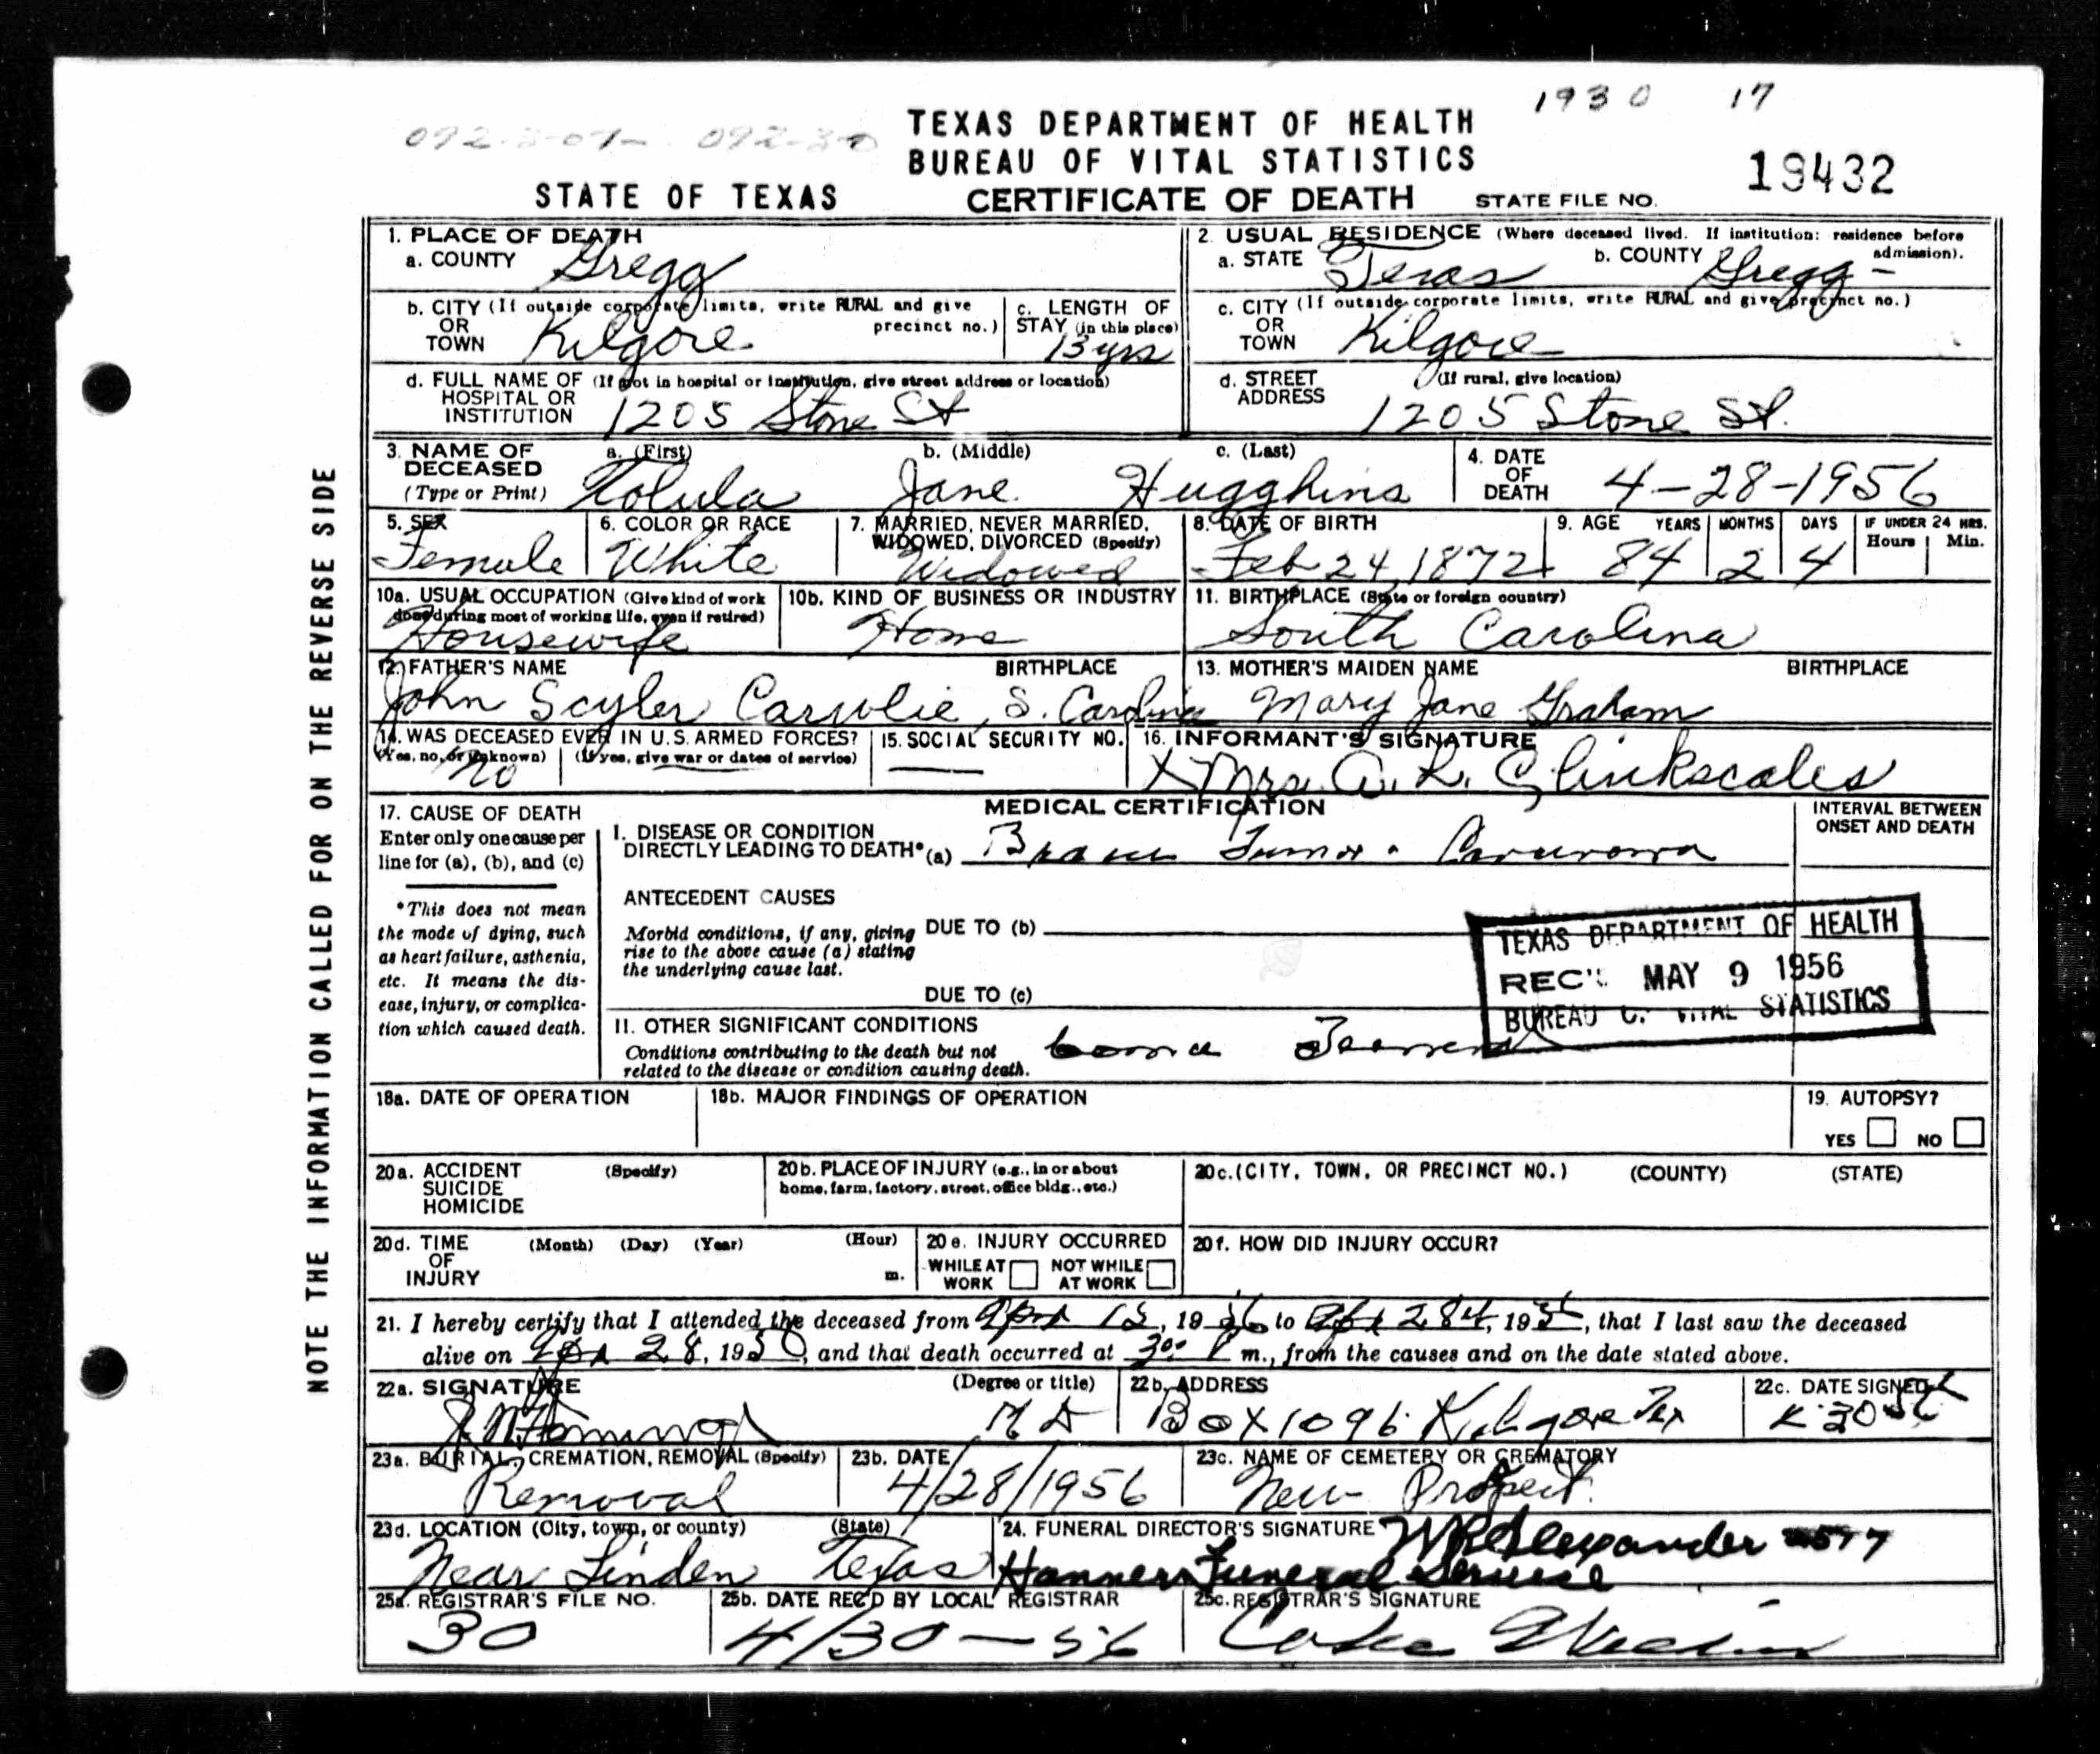 1930 17
092-3-07- 092-30
TEXAS DEPARTMENT OF HEALTH
BUREAU OF VITAL STATISTICS
STATE OF TEXAS CERTIFICATE OF DEATH STATE FILE NO. 19432
NOTE THE INFORMATION CALLED FOR ON THE REVERSE SIDE
1. PLACE OF DEATH
a. COUNTY Gregg
2. USUAL RESIDENCE (Where deceased lived. If institution: residence before admission).
a. STATE Texas b. COUNTY Gregg
b. CITY (If outside corporate limits, write RURAL and give precinct no.)
OR TOWN Kilgore
c. LENGTH OF STAY (in this place) 13 yrs
c. CITY (If outside corporate limits, write RURAL and give precinct no.)
OR TOWN Kilgore
d. FULL NAME OF (If not in hospital or institution, give street address or location)
HOSPITAL OR INSTITUTION 1205 Stone St
d. STREET ADDRESS (If rural, give location)
1205 Stone St.
3. NAME OF DECEASED (Type or Print)
a. (First) b. (Middle) c. (Last)
Tolula Jane Hugghins
4. DATE OF DEATH 4-28-1956
5. SEX Female
6. COLOR OR RACE White
7. MARRIED, NEVER MARRIED, WIDOWED, DIVORCED (Specify) Widowed
8. DATE OF BIRTH Feb 24, 1872
9. AGE YEARS MONTHS DAYS IF UNDER 24 HRS. Hours Min.
84 2 4
10a. USUAL OCCUPATION (Give kind of work done during most of working life, even if retired)
Housewife
10b. KIND OF BUSINESS OR INDUSTRY
Home
11. BIRTHPLACE (State or foreign country)
South Carolina
12. FATHER'S NAME BIRTHPLACE
John Scyler Carwlie, S. Carolina
13. MOTHER'S MAIDEN NAME BIRTHPLACE
Mary Jane Graham
14. WAS DECEASED EVER IN U.S. ARMED FORCES?
(Yes, no, or unknown) (If yes, give war or dates of service)
no
15. SOCIAL SECURITY NO.
16. INFORMANT'S SIGNATURE
X Mrs. A. L. Clinkscales
17. CAUSE OF DEATH
Enter only one cause per line for (a), (b), and (c)
*This does not mean the mode of dying, such as heart failure, asthenia, etc. It means the disease, injury, or complication which caused death.
MEDICAL CERTIFICATION
INTERVAL BETWEEN ONSET AND DEATH
I. DISEASE OR CONDITION DIRECTLY LEADING TO DEATH* (a) Brain Tumor
ANTECEDENT CAUSES
Morbid conditions, if any, giving rise to the above cause (a) stating the underlying cause last.
DUE TO (b)
DUE TO (c)
TEXAS DEPARTMENT OF HEALTH
REC'D MAY 9 1956
BUREAU OF VITAL STATISTICS
II. OTHER SIGNIFICANT CONDITIONS
Conditions contributing to the death but not related to the disease or condition causing death.
Coma
18a. DATE OF OPERATION
18b. MAJOR FINDINGS OF OPERATION
19. AUTOPSY?
YES NO
20a. ACCIDENT SUICIDE HOMICIDE (Specify)
20b. PLACE OF INJURY (e.g., in or about home, farm, factory, street, office bldg., etc.)
20c. (CITY, TOWN, OR PRECINCT NO.) (COUNTY) (STATE)
20d. TIME OF INJURY (Month) (Day) (Year) (Hour) m.
20e. INJURY OCCURRED
WHILE AT WORK NOT WHILE AT WORK
20f. HOW DID INJURY OCCUR?
21. I hereby certify that I attended the deceased from Apr 15, 1956 to Apr 28th, 1956, that I last saw the deceased
alive on Apr 28, 1956, and that death occurred at 3:00 P m., from the causes and on the date stated above.
22a. SIGNATURE (Degree or title)
MD
22b. ADDRESS
Box 1096 Kilgore Tex
22c. DATE SIGNED
30 56
23a. BURIAL, CREMATION, REMOVAL (Specify)
Removal
23b. DATE
4/28/1956
23c. NAME OF CEMETERY OR CREMATORY
New Prospect
23d. LOCATION (City, town, or county) (State)
Near Linden Texas
24. FUNERAL DIRECTOR'S SIGNATURE W R Alexander 2577
Hanners Funeral Service
25a. REGISTRAR'S FILE NO.
30
25b. DATE REC'D BY LOCAL REGISTRAR
4/30-56
25c. REGISTRAR'S SIGNATURE